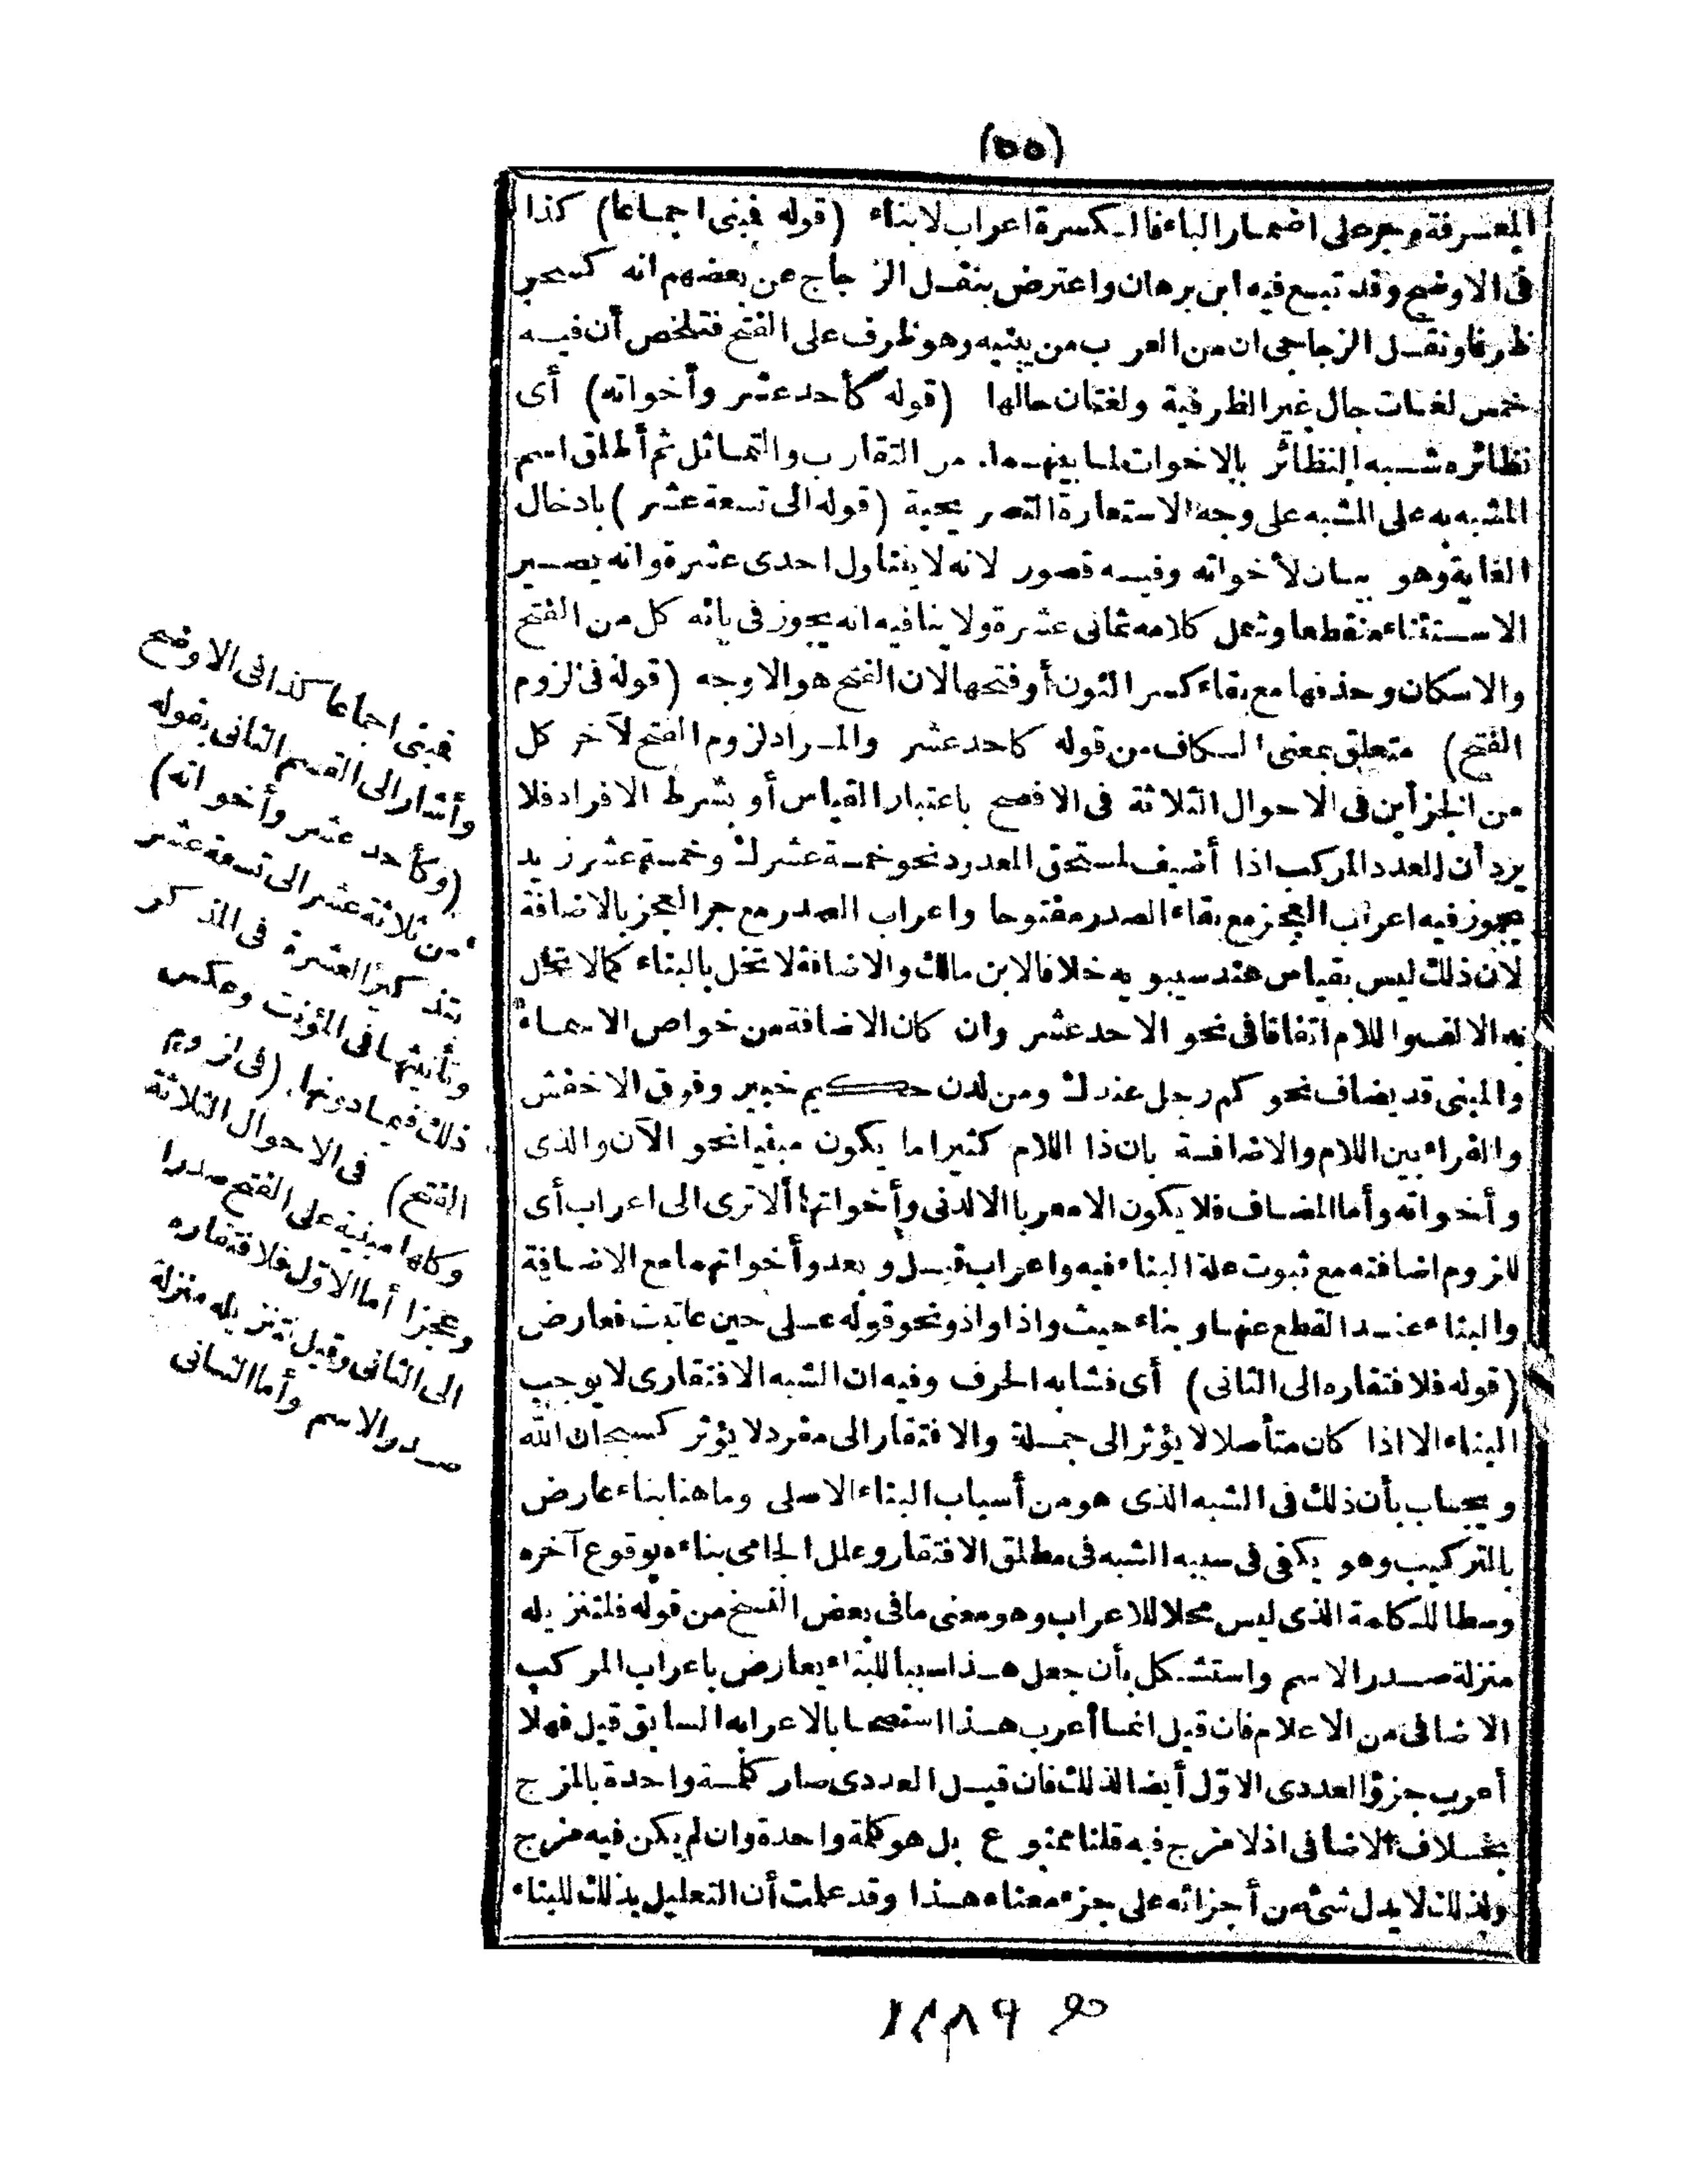 (٥٥)
المعرفة وجر على اضمار الباء فالكسرة اعراب لا بناء (قوله فبنى اجماعا) كذا
فى الاوضح وقد تبع فيه ابن برهان واعترض بنقل الزجاج عن بعضهم انه كسحر
ظرفا ونقل الزجاجى ان من العرب من يبنيه وهو ظرف على الفتح فتلخص أن فيه
خمس لغات حال غير الظرفية ولغتان حالها (قوله كأحد عشر وأخواته) أى
نظائره شبه النظائر بالاخوات لما بينهما من التقارب والتماثل ثم أطلق اسم
المشبه به على المشبه على وجه الاستعارة التصريحية (قوله الى تسعة عشر) بادخال
الغاية وهو بيان لأخواته وفيه قصور لانه لا يتناول احدى عشرة وانه يصير
الاستثناء منقطعا وشمل كلامه ثمانى عشرة ولا ينافيه انه يجوز فى يائه كل من الفتح
والاسكان وحذفها مع بقاء كسر النون أو فتحها لان الفتح هو الاوجه (قوله فى لزوم
الفتح) متعلق بمعنى الكاف من قوله كاحد عشر والمراد لزوم الفتح لآخر كل
من الجزأين فى الاحوال الثلاثة فى الافصح باعتبار القياس أو بشرط الافراد فلا
يرد أن العدد المركب اذا أضيف لمستحق المعدود نحو خمسة عشرك وخمسة عشر زيد
يجوز فيه اعراب العجز مع بقاء الصدر مفتوحا واعراب الصدر مع جر العجز بالاضافة
لان ذلك ليس بقياس عند سيبويه خلافا لابن مالك والاضافة لا تخل بالبناء كمالا تخل
به الالف واللام اتفاقا فى نحو الاحد عشر وان كان الاضافة من خواص الاسماء
والمبنى قد يضاف نحو كم رجل عندك ومن لدن حكيم خبير وفرق الاخفش
والفراء بين اللام والاضافة بان ذا اللام كثيرا ما يكون مبنيا نحو الآن والذى
وأخواته وأما المضاف فلا يكون الا معربا الا لدنى وأخواتها ألا ترى الى اعراب أى
للزوم اضافته مع ثبوت علة البناء فيه واعراب قبل وبعد وأخواتهما مع الاضافة
والبناء عند القطع عنها وبناء حيث واذا واذ ونحو قوله على حين عاتبت فعارض
(قوله فلافتقاره الى الثانى) أى فشابه الحرف وفيه ان الشبه الافتقارى لا يوجب
البناء الا اذا كان متأصلا لا يؤثر الى جملة والافتقار الى مفرد لا يؤثر كسبحان الله
ويجاب بأن ذلك فى الشبه الذى هو من أسباب البناء الاصلى وما هنا بناء عارض
بالتركيب وهو يكفى فى سببه الشبه فى مطلق الافتقار وعلل الجامى بناءه بوقوع آخره
وسطا للكلمة الذى ليس محلا للاعراب وهو معنى ما فى بعض النسخ من قوله فلتنزيله
منزلة صدر الاسم واستشكل بأن جعل هذا سببا للبناء يعارض باعراب المركب
الاضافى من الاعلام فان قيل انما أعرب هذا استصحابا لاعرابه السابق قيل فهلا
أعرب جزؤ العددى الاوّل أيضا لذلك فان قيل العددى صار كلمة واحدة بالمزج
بخلاف الاضافى اذ لا مزج فيه قلنا ممنوع بل هو كلمة واحدة وان لم يكن فيه مزج
ولذلك لا يدل شئ من أجزائه على جزء معناه هذا وقد علمت أن التعليل بذلك للبناء
فبنى اجماعا كذا فى الاوضح
وأشار الى القسم الثانى بقوله
(وكأحد عشر وأخواته)
من ثلاثة عشر الى تسعة عشر
بتذكير العشرة فى المذكر
وتأنيثها فى المؤنث وعكس
ذلك فيما دونها (فى لزوم
الفتح) فى الاحوال الثلاثة
وكلها مبنية على الفتح صدرا
وعجزا أما الاوّل فلافتقاره
الى الثانى وقيل لتنزيله منزلة
صدر الاسم وأما الثانى